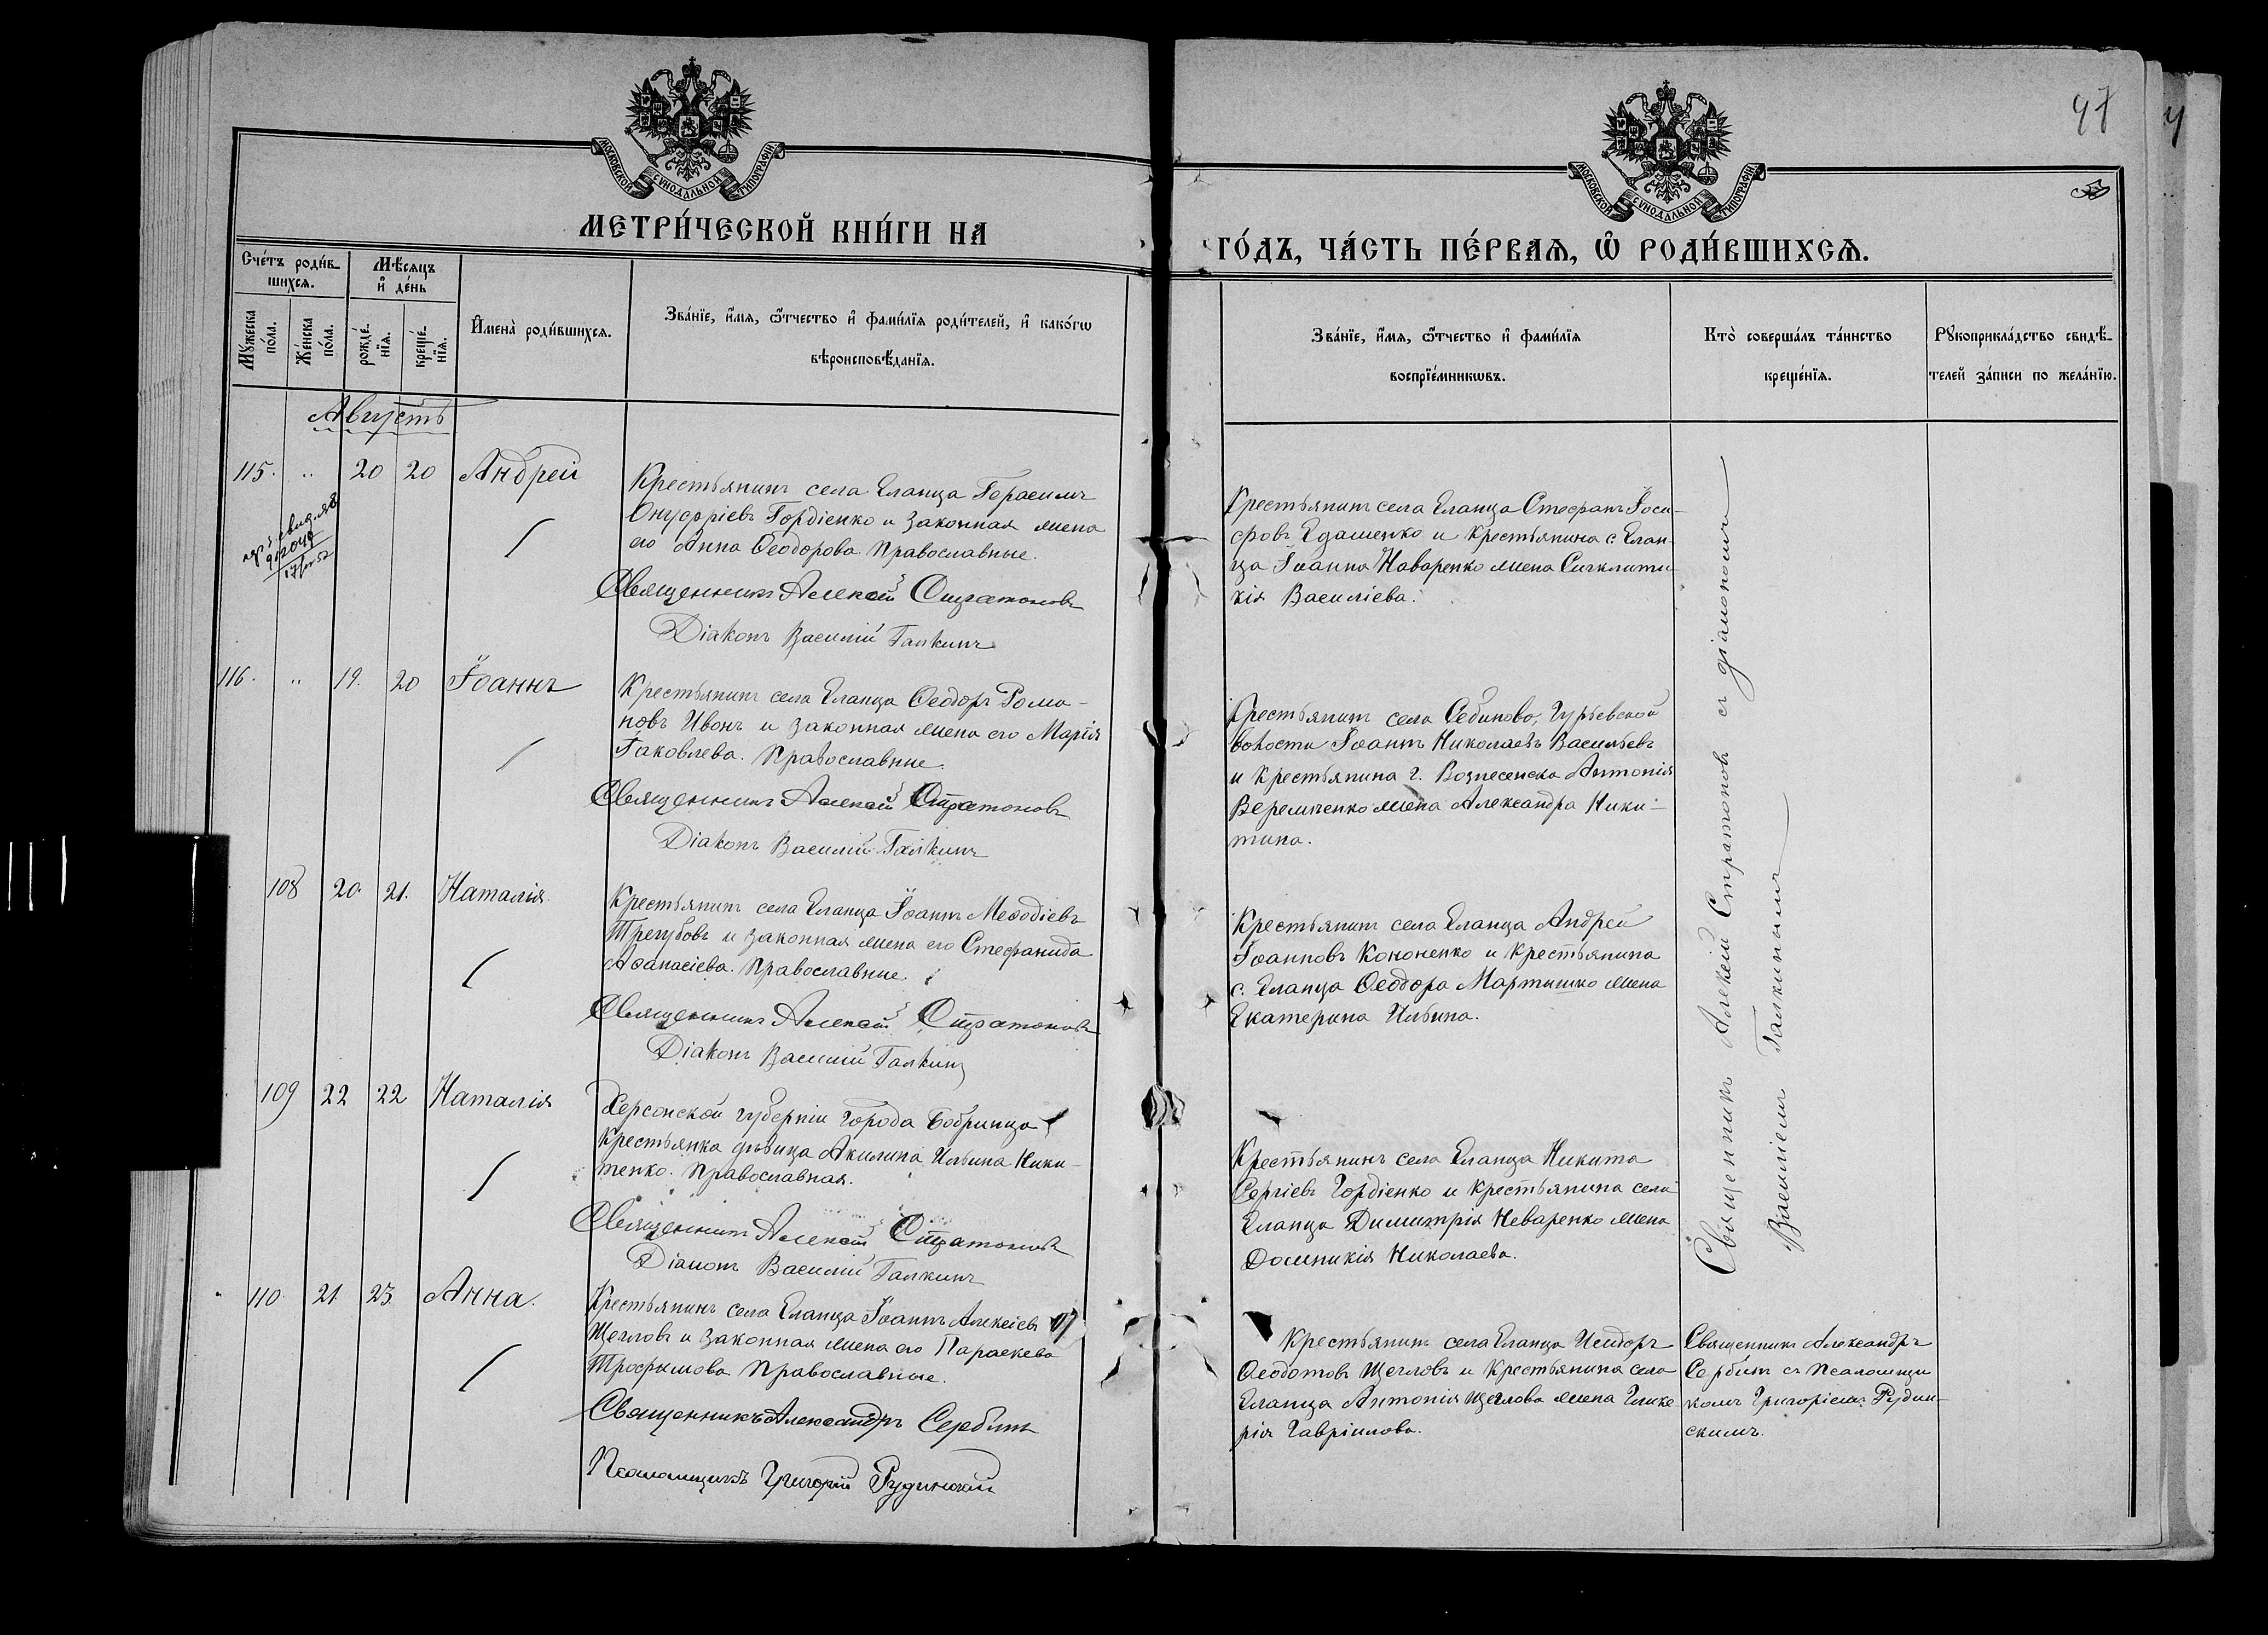 47
МОСКОВСКОЙ СѴНОДАЛЬНОЙ ТИПОГРАФІИ
МОСКОВСКОЙ СѴНОДАЛЬНОЙ ТИПОГРАФІИ
МЕТРИ́ЧЕСКОЙ КНИ́ГИ НА
ГО́ДЪ, ЧА́СТЬ ПЕ́РВАѦ, Ѡ҆ РОДИ́ВШИХСѦ.
Сче́тъ роди́в-
шихсѧ.
Мѣ́сѧцъ
и҆ де́нь
Мꙋ́жеска
по́ла.
Же́нска
по́ла.
рожде́-
нїѧ.
креще́-
нїѧ.
И҆мена̀ роди́вшихсѧ.
Зва́нїе, и҆́мѧ, ѻ҆́тчество и҆ фами́лїѧ роди́телей, и҆ како́гѡ
вѣроисповѣ́данїѧ.
Зва́нїе, и҆́мѧ, ѻ҆́тчество и҆ фами́лїѧ
воспрїе́мникѡвъ.
Кто̀ соверша́лъ та́инство
креще́нїѧ.
Рꙋкоприкла́дство свидѣ́-
телей за́писи по жела́нїю.
Августъ
115. " 20 20 Андрей
Крестьянинъ села Еланца Герасимъ
Онуфріевъ Гордіенко и законная жена
его Анна Ѳеодорова. Православные.
Священникъ Алексій Стратоновъ
Діаконъ Василій Галкинъ
Крестьянинъ села Еланца Стефанъ Іоси-
фовъ Едаменко и крестьянина с. Елан-
ца Іоанна Наваренко жена Синклити-
кія Василіева.
116. " 19. 20 Іоаннъ
Крестьянинъ села Еланца Ѳеодоръ Рома-
новъ Ивонъ и законная жена его Марія
Іаковлева. Православные.
Священникъ Алексій Стратоновъ
Діаконъ Василій Галкинъ
Крестьянинъ села Себиново, Гурьевской
волости Іоаннъ Николаевъ Васильевъ
и крестьянина г. Вознесенска Антонія
Веремченко жена Александра Ники-
тина.
108 20. 21. Наталія
Крестьянинъ села Еланца Іоаннъ Меѳодіевъ
Трегубовъ и законная жена его Стефанида
Аѳанасіева. Православные.
Священникъ Алексій Стратоновъ
Діаконъ Василій Галкинъ
Крестьянинъ села Еланца Андрей
Іоанновъ Кононенко и крестьянина
с. Еланца Ѳеодора Мартышко жена
Екатерина Ильина.
109 22 22 Наталія
Херсонской губерніи города Бобринца
крестьянка дѣвица Акилина Ильина Ники-
тенко. Православная.
Священникъ Алексій Стратоновъ
Діаконъ Василій Галкинъ
Крестьянинъ села Еланца Никита
Сергіевъ Гордіенко и крестьянина села
Еланца Димитрія Неваренко жена
Домникія Николаева.
Священникъ Алексій Стратоновъ съ діакономъ
Василіемъ Галкинымъ
110 21 23. Анна.
Крестьянинъ села Еланца Іоаннъ Алексіевъ
Щегловъ и законная жена его Параскева
Трофимова Православные.
Священникъ Александръ Сербинъ
Псаломщикъ Григорій Рудинскій
Крестьянинъ села Еланца Исидоръ
Ѳеодотовъ Щегловъ и крестьянина села
Еланца Антонія Щеглова жена Глике-
рія Гавріилова.
Священникъ Александръ
Сербинъ съ псаломщи-
комъ Григоріемъ Рудин-
скимъ.